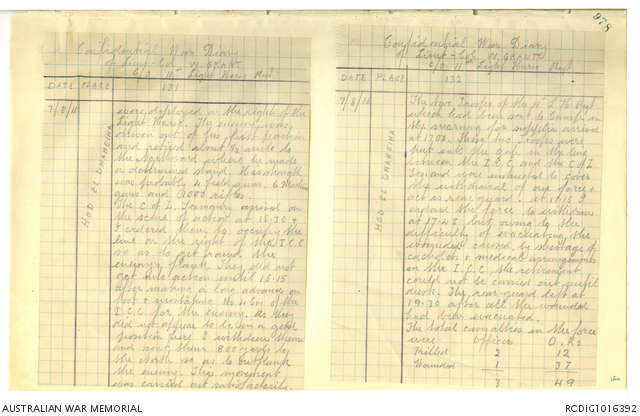 Confidential War Diary
of Lieut-Col. W. GRANT.
C/O 11th Light Horse Regt.
DATE PLACE 131
7/8/16
HOD EL DHABEIHA
were deployed on the right of the
Light Horse. The enemy was
driven out of his first position
and retired about ¾ mile to
the Northward where he made
a determined stand. His strength
was probably 4 field guns, 6 Machine
guns and 3000 rifles.
The C of I. Yeomanry arrived on
the scene of action at 15.30 &
I ordered them to occupy the
line on the right of the I.C.C
so as to get round the
enemy's flank. They did not
get into action until 16.15
after making a long advance on
foot & mistaking the 4 Bn. of the
I.C.C. for the enemy. As they
did not appear to be in a good
position here I withdrew them
and sent them 800 yards to
the North so as to outflank
the enemy. This movement
was carried out satisfactorily.
978
Confidential War Diary
of Lieut-Col. W. GRANT.
C/O 11th Light Horse Regt.
DATE PLACE 132
7/8/16
HOD EL DHABEIHA
The two Troops of the 11th L.H. Regt
which had been sent to Camp in
the morning for supplies arrived
at 17.00. These two Troops were
put into the gap in the line
between the I.C.C and the C of I
Yeo. and were instructed to cover
the withdrawal of our force &
act as rear guard. At 17.15 I
ordered the force to withdraw
at 17.45, but owing to the
difficulty of evacuating the
wounded caused by shortage of
cacholets & medical arrangements
in the I.C.C. the retirement
could not be carried out until
dusk. The rear guard left at
19.30 after all the wounded
had been evacuated.
The total casualties in the force
were Officers O.Rs
Killed 2 12
Wounded 1 37
3 49
AUSTRALIAN WAR MEMORIAL
RCDIG1016392